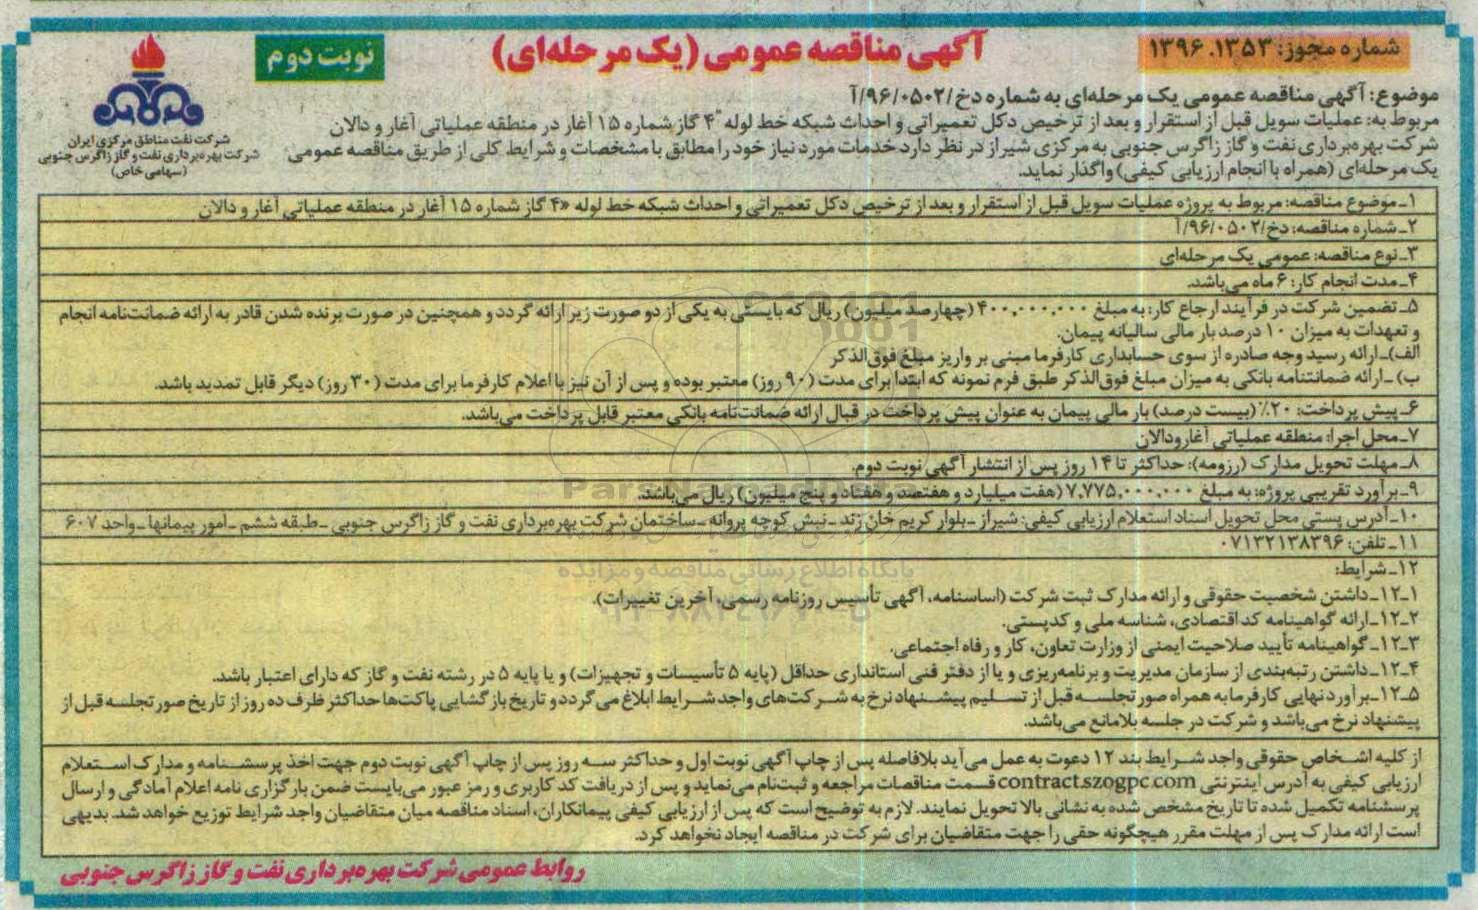 شماره مجوز: ۱۳۹۶.۱۳۵۳
آگهی مناقصه عمومی (یک مرحله‌ای)
نوبت دوم
شرکت نفت مناطق مرکزی ایران
شرکت بهره‌برداری نفت و گاز زاگرس جنوبی
(سهامی خاص)
موضوع: آگهی مناقصه عمومی یک مرحله‌ای به شماره دخ/۹۶/۰۵۰۲/آ
مربوط به: عملیات سویل قبل از استقرار و بعد از ترخیص دکل تعمیراتی و احداث شبکه خط لوله "۴ گاز شماره ۱۵ آغار در منطقه عملیاتی آغار و دالان
شرکت بهره‌برداری نفت و گاز زاگرس جنوبی به مرکزی شیراز در نظر دارد خدمات مورد نیاز خود را مطابق با مشخصات و شرایط کلی از طریق مناقصه عمومی
یک مرحله‌ای (همراه با انجام ارزیابی کیفی) واگذار نماید.
۱ـ موضوع مناقصه: مربوط به پروژه عملیات سویل قبل از استقرار و بعد از ترخیص دکل تعمیراتی و احداث شبکه خط لوله «۴ گاز شماره ۱۵ آغار در منطقه عملیاتی آغار و دالان
۲ـ شماره مناقصه: دخ/۹۶/۰۵۰۲/آ
۳ـ نوع مناقصه: عمومی یک مرحله‌ای
۴ـ مدت انجام کار: ۶ ماه می‌باشد.
۵ـ تضمین شرکت در فرآیند ارجاع کار: به مبلغ ۴۰۰,۰۰۰,۰۰۰ (چهارصد میلیون) ریال که بایستی به یکی از دو صورت زیر ارائه گردد و همچنین در صورت برنده شدن قادر به ارائه ضمانت‌نامه انجام
و تعهدات به میزان ۱۰ درصد بار مالی سالیانه پیمان.
الف)ـ ارائه رسید وجه صادره از سوی حسابداری کارفرما مبنی بر واریز مبلغ فوق‌الذکر
ب) ـ ارائه ضمانتنامه بانکی به میزان مبلغ فوق‌الذکر طبق فرم نمونه که ابتدا برای مدت (۹۰ روز) معتبر بوده و پس از آن نیز با اعلام کارفرما برای مدت (۳۰ روز) دیگر قابل تمدید باشد.
۶ـ پیش پرداخت: ۲۰٪ (بیست درصد) بار مالی پیمان به عنوان پیش پرداخت در قبال ارائه ضمانت‌نامه بانکی معتبر قابل پرداخت می‌باشد.
۷ـ محل اجرا: منطقه عملیاتی آغارودالان
۸ـ مهلت تحویل مدارک (رزومه): حداکثر تا ۱۴ روز پس از انتشار آگهی نوبت دوم.
۹ـ برآورد تقریبی پروژه: به مبلغ ۷,۷۷۵,۰۰۰,۰۰۰ (هفت میلیارد و هفتصد و هفتاد و پنج میلیون) ریال می‌باشد.
۱۰ـ آدرس پستی محل تحویل اسناد استعلام ارزیابی کیفی: شیراز ـ بلوار کریم خان زند ـ نبش کوچه پروانه ـ ساختمان شرکت بهره‌برداری نفت و گاز زاگرس جنوبی ـ طبقه ششم ـ امور پیمانها ـ واحد ۶۰۷
۱۱ـ تلفن: ۰۷۱۳۲۱۳۸۳۹۶
۱۲ـ شرایط:
۱ـ۱۲ـ داشتن شخصیت حقوقی و ارائه مدارک ثبت شرکت (اساسنامه، آگهی تأسیس روزنامه رسمی، آخرین تغییرات).
۲ـ۱۲ـ ارائه گواهینامه کد اقتصادی، شناسه ملی و کدپستی.
۳ـ۱۲ـ گواهینامه تأیید صلاحیت ایمنی از وزارت تعاون، کار و رفاه اجتماعی.
۴ـ۱۲ـ داشتن رتبه‌بندی از سازمان مدیریت و برنامه‌ریزی و یا از دفتر فنی استانداری حداقل (پایه ۵ تأسیسات و تجهیزات) و یا پایه ۵ در رشته نفت و گاز که دارای اعتبار باشد.
۵ـ۱۲ـ برآورد نهایی کارفرما به همراه صورتجلسه قبل از تسلیم پیشنهاد نرخ به شرکت‌های واجد شرایط ابلاغ می گردد و تاریخ بازگشایی پاکت‌ها حداکثر ظرف ده روز از تاریخ صورتجلسه قبل از
پیشنهاد نرخ می‌باشد و شرکت در جلسه بلامانع می‌باشد.
از کلیه اشخاص حقوقی واجد شرایط بند ۱۲ دعوت به عمل می‌آید بلافاصله پس از چاپ آگهی نوبت اول و حداکثر سه روز پس از چاپ آگهی نوبت دوم جهت اخذ پرسشنامه و مدارک استعلام
ارزیابی کیفی به آدرس اینترنتی contract.szogpc.com قسمت مناقصات مراجعه و ثبت‌نام می‌نماید و پس از دریافت کد کاربری و رمز عبور می‌بایست ضمن بارگزاری نامه اعلام آمادگی و ارسال
پرسشنامه تکمیل شده تا تاریخ مشخص شده به نشانی بالا تحویل نمایند. لازم به توضیح است که پس از ارزیابی کیفی پیمانکاران، اسناد مناقصه میان متقاضیان واجد شرایط توزیع خواهد شد. بدیهی
است ارائه مدارک پس از مهلت مقرر هیچگونه حقی را جهت متقاضیان برای شرکت در مناقصه ایجاد نخواهد کرد.
روابط عمومی شرکت بهره‌برداری نفت و گاز زاگرس جنوبی
ParsNamadData
پایگاه اطلاع رسانی مناقصه و مزایده